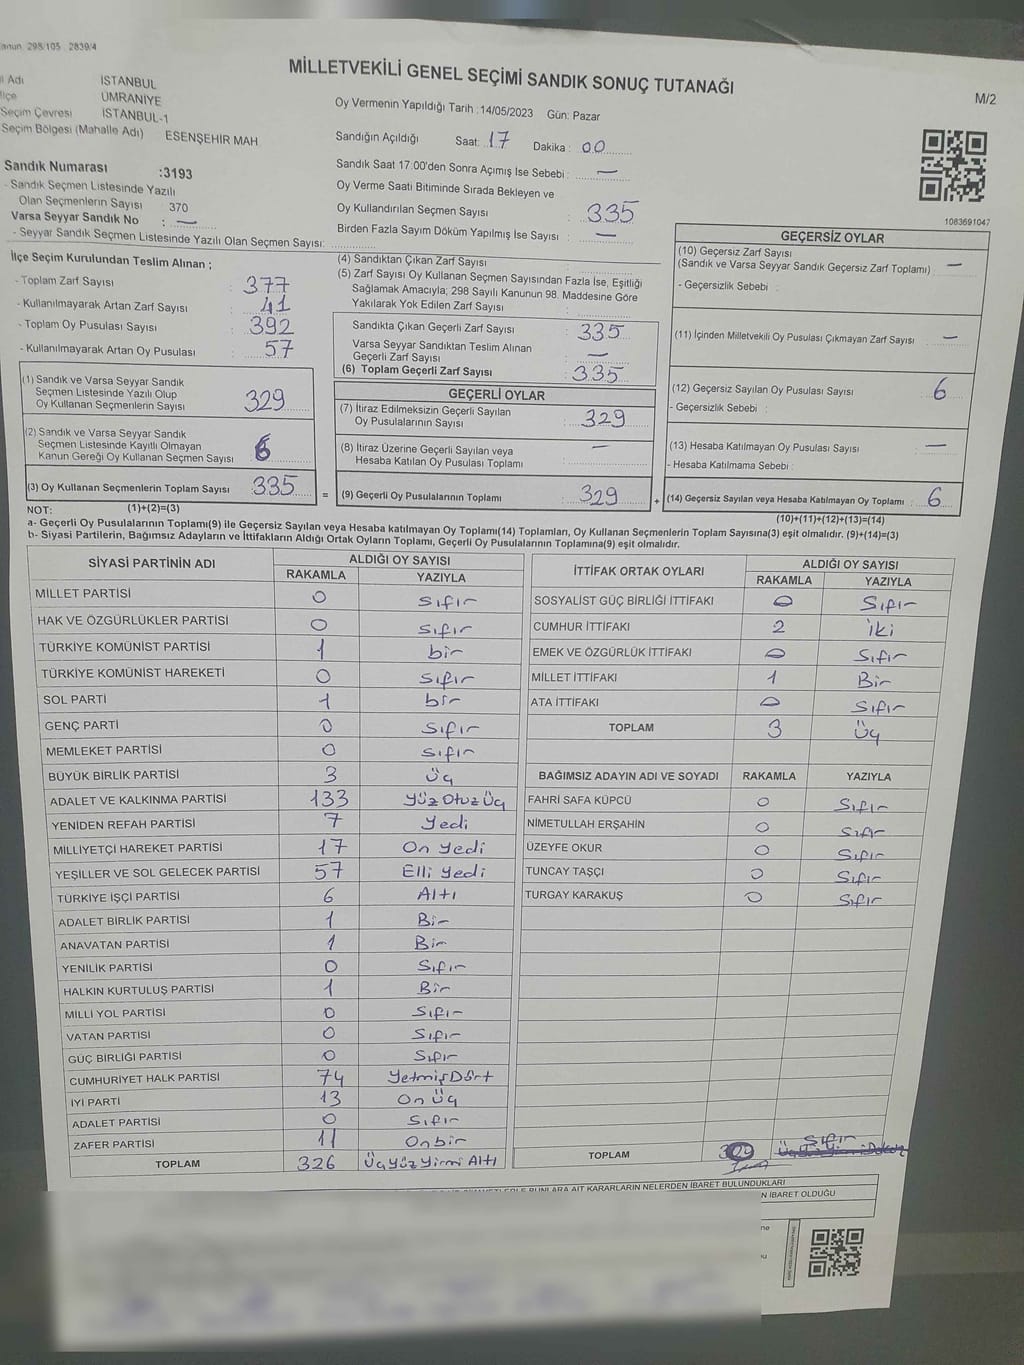 anun 298/105 2839/4
MİLLETVEKİLİ GENEL SEÇİMİ SANDIK SONUÇ TUTANAĞI
M/2
l Adı İSTANBUL
lçe ÜMRANİYE
Seçim Çevresi İSTANBUL-1
Seçim Bölgesi (Mahalle Adı) ESENŞEHİR MAH.
Sandık Numarası :3193
- Sandık Seçmen Listesinde Yazılı
Olan Seçmenlerin Sayısı : 370
Varsa Seyyar Sandık No : —
- Seyyar Sandık Seçmen Listesinde Yazılı Olan Seçmen Sayısı:
Oy Vermenin Yapıldığı Tarih :14/05/2023 Gün: Pazar
Sandığın Açıldığı Saat: 17 Dakika : 00
Sandık Saat 17:00'den Sonra Açımış İse Sebebi : —
Oy Verme Saati Bitiminde Sırada Bekleyen ve
Oy Kullandırılan Seçmen Sayısı : 335
Birden Fazla Sayım Döküm Yapılmış İse Sayısı : —
1083691047
İlçe Seçim Kurulundan Teslim Alınan ;
- Toplam Zarf Sayısı : 377
- Kullanılmayarak Artan Zarf Sayısı : 41
- Toplam Oy Pusulası Sayısı : 392
- Kullanılmayarak Artan Oy Pusulası : 57
(1) Sandık ve Varsa Seyyar Sandık
Seçmen Listesinde Yazılı Olup
Oy Kullanan Seçmenlerin Sayısı : 329
(2) Sandık ve Varsa Seyyar Sandık
Seçmen Listesinde Kayıtlı Olmayan
Kanun Gereği Oy Kullanan Seçmen Sayısı : 6
(3) Oy Kullanan Seçmenlerin Toplam Sayısı : 335
(4) Sandıktan Çıkan Zarf Sayısı :
(5) Zarf Sayısı Oy Kullanan Seçmen Sayısından Fazla İse, Eşitliği
Sağlamak Amacıyla; 298 Sayılı Kanunun 98. Maddesine Göre
Yakılarak Yok Edilen Zarf Sayısı :
Sandıkta Çıkan Geçerli Zarf Sayısı : 335
Varsa Seyyar Sandıktan Teslim Alınan
Geçerli Zarf Sayısı : —
(6) Toplam Geçerli Zarf Sayısı : 335
GEÇERLİ OYLAR
(7) İtiraz Edilmeksizin Geçerli Sayılan
Oy Pusulalarının Sayısı : 329
(8) İtiraz Üzerine Geçerli Sayılan veya
Hesaba Katılan Oy Pusulası Toplamı : —
= (9) Geçerli Oy Pusulalarının Toplamı : 329 +
GEÇERSİZ OYLAR
(10) Geçersiz Zarf Sayısı
(Sandık ve Varsa Seyyar Sandık Geçersiz Zarf Toplamı) : —
- Geçersizlik Sebebi :
(11) İçinden Milletvekili Oy Pusulası Çıkmayan Zarf Sayısı : —
(12) Geçersiz Sayılan Oy Pusulası Sayısı : 6
- Geçersizlik Sebebi :
(13) Hesaba Katılmayan Oy Pusulası Sayısı : —
- Hesaba Katılmama Sebebi :
(14) Geçersiz Sayılan veya Hesaba Katılmayan Oy Toplamı : 6
NOT: (1)+(2)=(3) (10)+(11)+(12)+(13)=(14)
a- Geçerli Oy Pusulalarının Toplamı(9) ile Geçersiz Sayılan veya Hesaba katılmayan Oy Toplamı(14) Toplamları, Oy Kullanan Seçmenlerin Toplam Sayısına(3) eşit olmalıdır. (9)+(14)=(3)
b- Siyasi Partilerin, Bağımsız Adayların ve İttifakların Aldığı Ortak Oyların Toplamı, Geçerli Oy Pusulalarının Toplamına(9) eşit olmalıdır.
SİYASİ PARTİNİN ADI ALDIĞI OY SAYISI
RAKAMLA YAZIYLA
MİLLET PARTİSİ 0 Sıfır
HAK VE ÖZGÜRLÜKLER PARTİSİ 0 Sıfır
TÜRKİYE KOMÜNİST PARTİSİ 1 bir
TÜRKİYE KOMÜNİST HAREKETİ 0 Sıfır
SOL PARTİ 1 bir
GENÇ PARTİ 0 Sıfır
MEMLEKET PARTİSİ 0 Sıfır
BÜYÜK BİRLİK PARTİSİ 3 Üç
ADALET VE KALKINMA PARTİSİ 133 Yüz Otuz Üç
YENİDEN REFAH PARTİSİ 7 Yedi
MİLLİYETÇİ HAREKET PARTİSİ 17 On Yedi
YEŞİLLER VE SOL GELECEK PARTİSİ 57 Elli Yedi
TÜRKİYE İŞÇİ PARTİSİ 6 Altı
ADALET BİRLİK PARTİSİ 1 Bir
ANAVATAN PARTİSİ 1 Bir
YENİLİK PARTİSİ 0 Sıfır
HALKIN KURTULUŞ PARTİSİ 1 Bir
MİLLİ YOL PARTİSİ 0 Sıfır
VATAN PARTİSİ 0 Sıfır
GÜÇ BİRLİĞİ PARTİSİ 0 Sıfır
CUMHURİYET HALK PARTİSİ 74 Yetmiş Dört
İYİ PARTİ 13 On Üç
ADALET PARTİSİ 0 Sıfır
ZAFER PARTİSİ 11 Onbir
TOPLAM 326 Üç Yüz Yirmi Altı
İTTİFAK ORTAK OYLARI ALDIĞI OY SAYISI
RAKAMLA YAZIYLA
SOSYALİST GÜÇ BİRLİĞİ İTTİFAKI 0 Sıfır
CUMHUR İTTİFAKI 2 İki
EMEK VE ÖZGÜRLÜK İTTİFAKI 0 Sıfır
MİLLET İTTİFAKI 1 Bir
ATA İTTİFAKI 0 Sıfır
TOPLAM 3 Üç
BAĞIMSIZ ADAYIN ADI VE SOYADI RAKAMLA YAZIYLA
FAHRİ SAFA KÜPCÜ 0 Sıfır
NİMETULLAH ERŞAHİN 0 Sıfır
ÜZEYFE OKUR 0 Sıfır
TUNCAY TAŞÇI 0 Sıfır
TURGAY KARAKUŞ 0 Sıfır
TOPLAM Sıfır
BUNLARA AİT KARARLARIN NELERDEN İBARET BULUNDUKLARI
N İBARET OLDUĞU